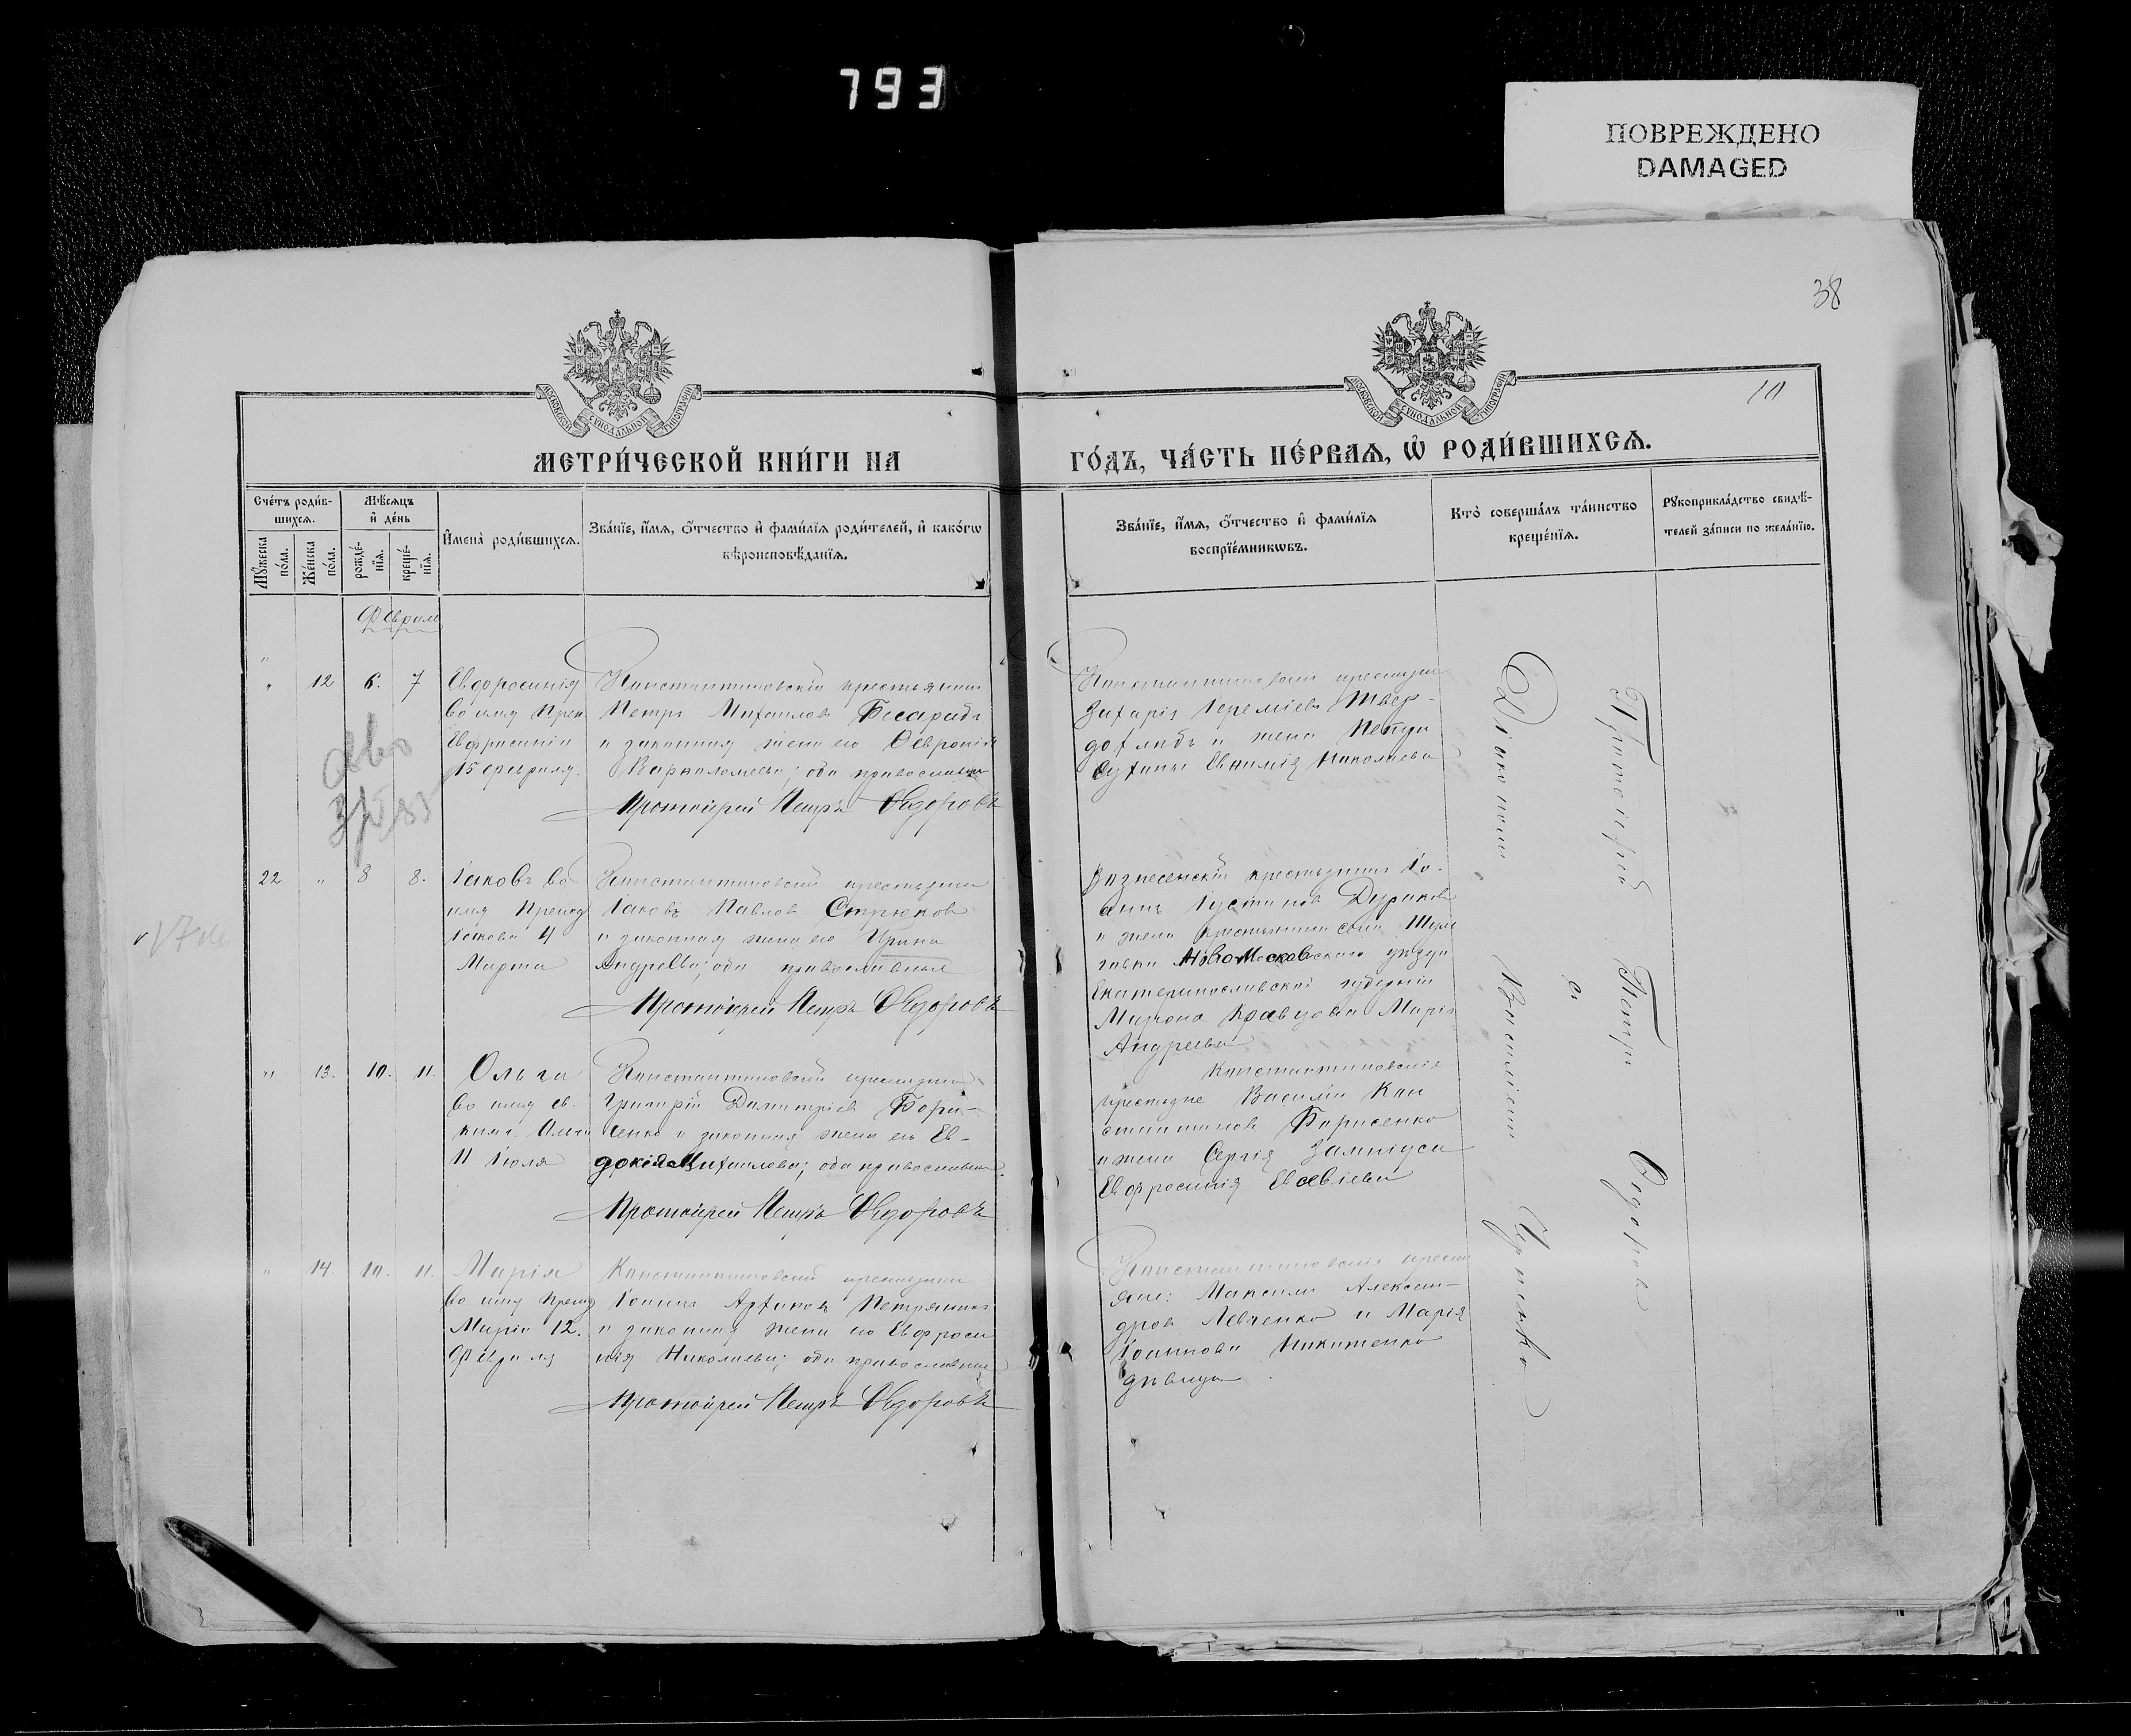 793
ПОВРЕЖДЕНО
DAMAGED
38
10
МОСКОВСКОЙ СУНОДАЛЬНОЙ ТИПОГРАФІИ
МОСКОВСКОЙ СУНОДАЛЬНОЙ ТИПОГРАФІИ
МЕТРИ́ЧЕСКОЙ КНИ́ГИ НА
ГО́ДЪ, ЧА́СТЬ ПЕ́РВАѦ, Ѡ҆ РОДИ́ВШИХСѦ.
Сче́тъ роди́в-
шихсѧ.
Мѣ́сѧцъ
и҆ де́нь
Мꙋ́жеска
по́ла.
Же́нска
по́ла.
рожде́-
нїѧ.
креще́-
нїѧ.
И҆мена̀ роди́вшихсѧ.
Зва́нїе, и҆́мѧ, ѻ҆́тчество и҆ фами́лїѧ роди́телей, и҆ како́гѡ
вѣроисповѣ́данїѧ.
Зва́нїе, и҆́мѧ, ѻ҆́тчество и҆ фами́лїѧ
воспрїе́мникѡвъ.
Кто̀ соверша́лъ та́инство
креще́нїѧ.
Рꙋкоприкла́дство свидѣ́-
телей за́писи по жела́нїю.
Февраль
" 12 6. 7
Евфросинія
во имя Преп.
Евфросиніи
15 февраля.
Константиновскій крестьянинъ
Петръ Михаиловъ Бесарабъ
и законная жена его Февронія
Варфоломеева; оба православные
Протоіерей Петръ Ѳедоровъ
Константиновскій крестьянин
Захарія Іереміевъ Твер-
дохлебъ и жена Петра
Сухины Евфимія Николаева
22 " 8 8.
Іаковъ во
имя Препод
Іакова 4
Марта
Константиновскій крестьянин
Іаковъ Павловъ Стрюковъ
и законная жена его Ирина
Андреева; оба православные
Протоіерей Петръ Ѳедоровъ
Вознесенскій крестьянинъ Іо-
аннъ Іустиновъ Дураковъ
и жена крестьянина села
Новомосковскаго уезда
Екатеринославской губерніи
Мирона Кравцова Марія
Андреева
" 13. 10. 11.
Ольга
во имя св.
княг. Ольги
11 Іюля
Константиновскій крестьянин
Григорій Димитріевъ Бори-
сенко и законная жена его Ев-
докія Михаилова; оба православные
Протоіерей Петръ Ѳедоровъ
Константиновскіе
крестьяне Василій Кон
стантиновъ Борисенко
и жена Сергія
Евфросинія Евсевіева
" 14. 10. 11.
Марія
во имя препод
Маріи 12.
Февраля
Константиновскій крестьянин
Іоаннъ Петряшинъ
и законная жена его Евфроси
нія Николаева; оба православные
Протоіерей Петръ Ѳедоровъ
Константиновскіе крест
яне: Максимъ Алексан-
дровъ Левченко и Марія
Іоаннова Никитенко
девица
Протоіерей Петръ Ѳедоровъ
съ
Діакономъ Василіемъ